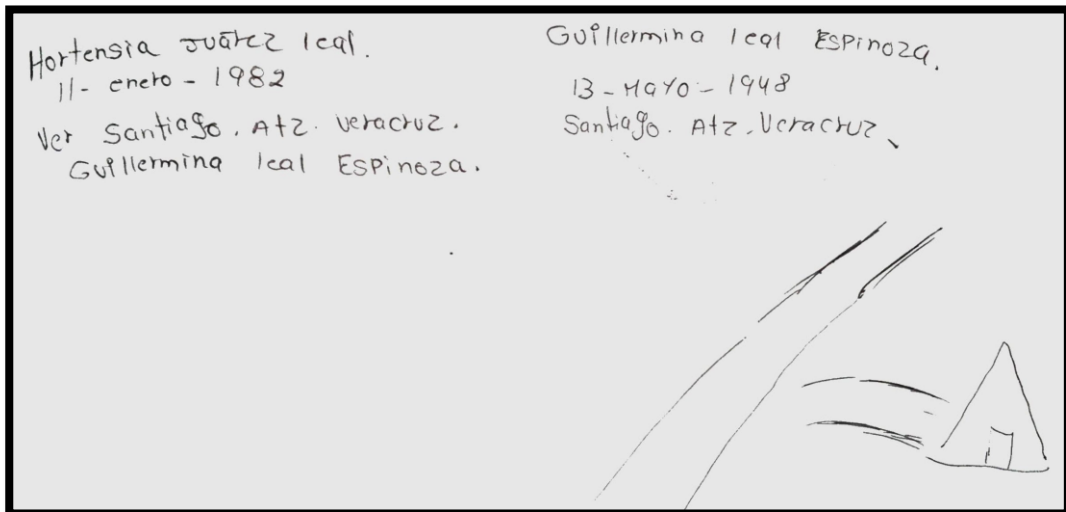 Hortensia Juárez leal.
11- enero - 1982
Ver Santiago. Atz. veracruz.
Guillermina leal Espinoza.
Guillermina leal Espinoza.
13 - Mayo - 1948
Santiago. Atz. Veracruz